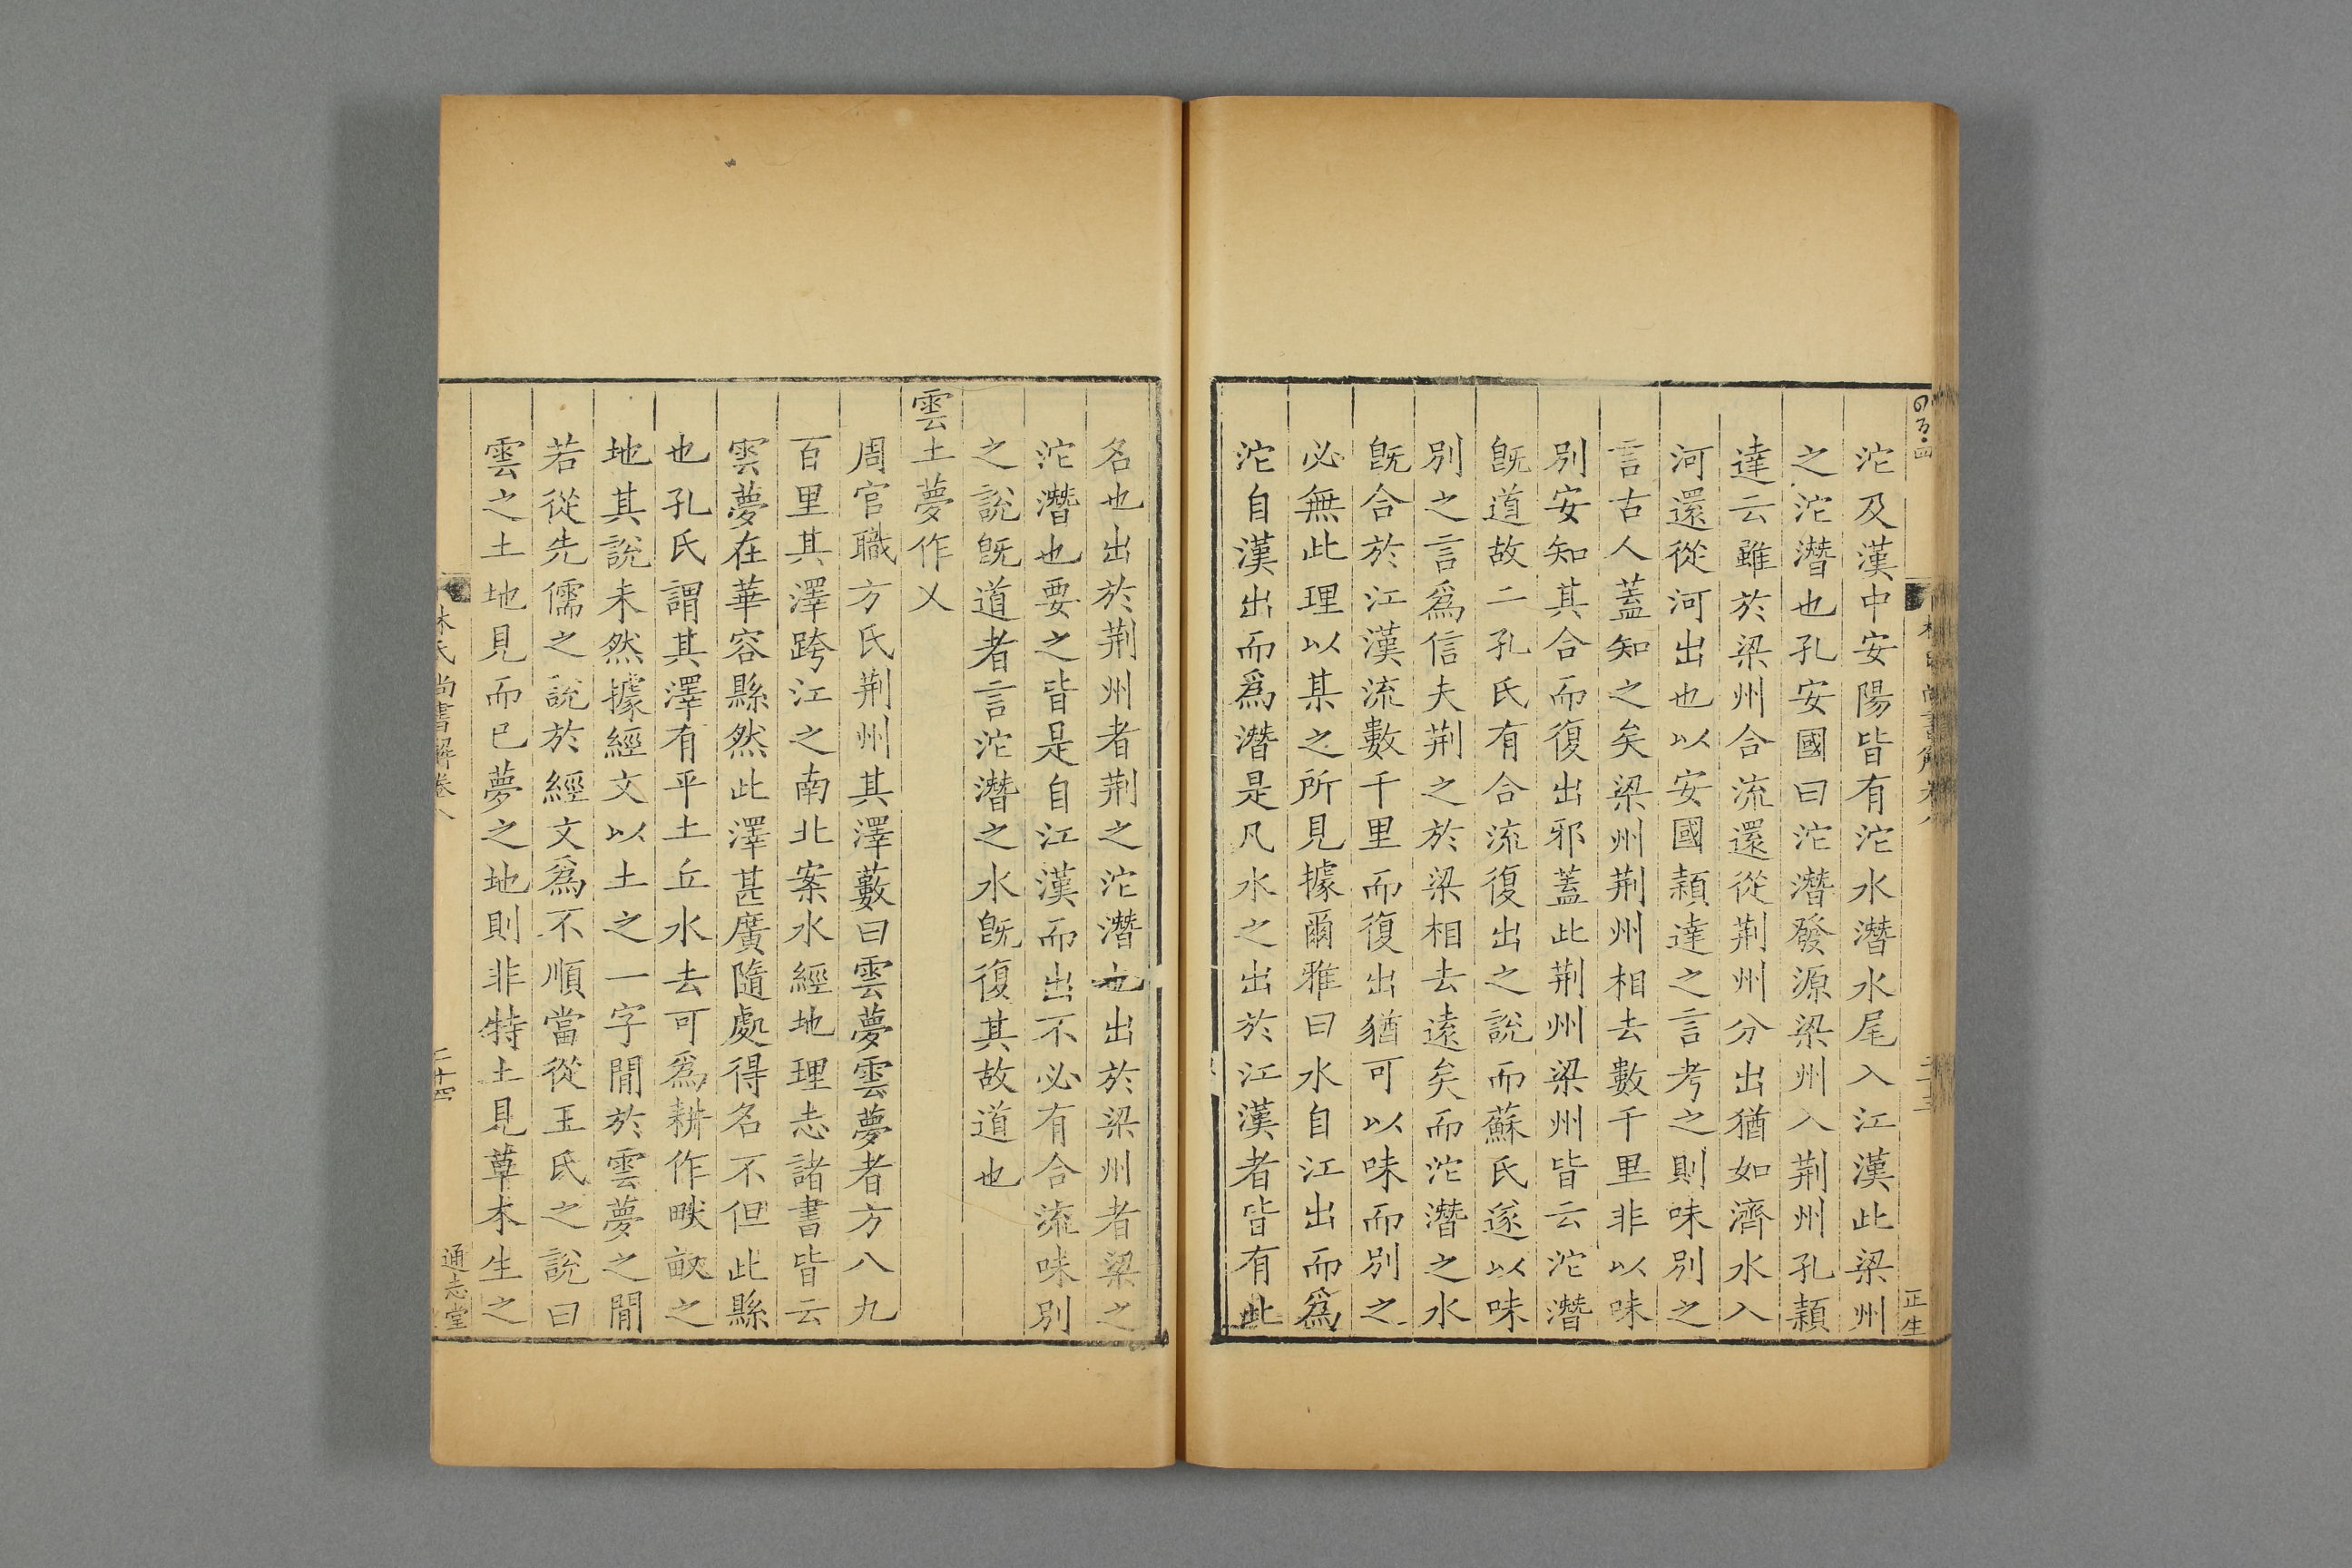 沱及漢中安陽皆有沱水潛水尾入江漢此梁州
之沱潛也孔安國曰沱潛發源梁州入荆州孔穎
達云雖於梁州合流還從荆州分出猶如濟水入
河還從河出也以安國穎達之言考之則味別之
言古人蓋知之矣梁州荆州相去數千里非以味
別安知其合而復出邪蓋此荆州梁州皆云沱潛
旣道故二孔氏有合流復出之說而蘇氏遂以味
別之言爲信夫荆之於梁相去遠矣而沱潛之水
旣合於江漢流數千里而復出猶可以味而別之
必無此理以某之所見據爾雅曰水自江出而爲
沱自漢出而爲潛是凡水之出於江漢者皆有此
正生
名也出於荆州者荆之沱潛也出於梁州者梁之
沱潛也要之皆是自江漢而出不必有合流味別
之說旣道者言沱潛之水旣復其故道也
雲土夢作乂
周官職方氏荆州其澤藪曰雲夢雲夢者方八九
百里其澤跨江之南北案水經地理志諸書皆云
雲夢在華容縣然此澤甚廣隨處得名不但此縣
也孔氏謂其澤有平土丘水去可爲耕作畎畝之
地其說未然據經文以土之一字閒於雲夢之閒
若從先儒之說於經文爲不順當從王氏之說曰
雲之土地見而已夢之地則非特土見草木生之
林氏尚書解卷八
二十四
通志堂